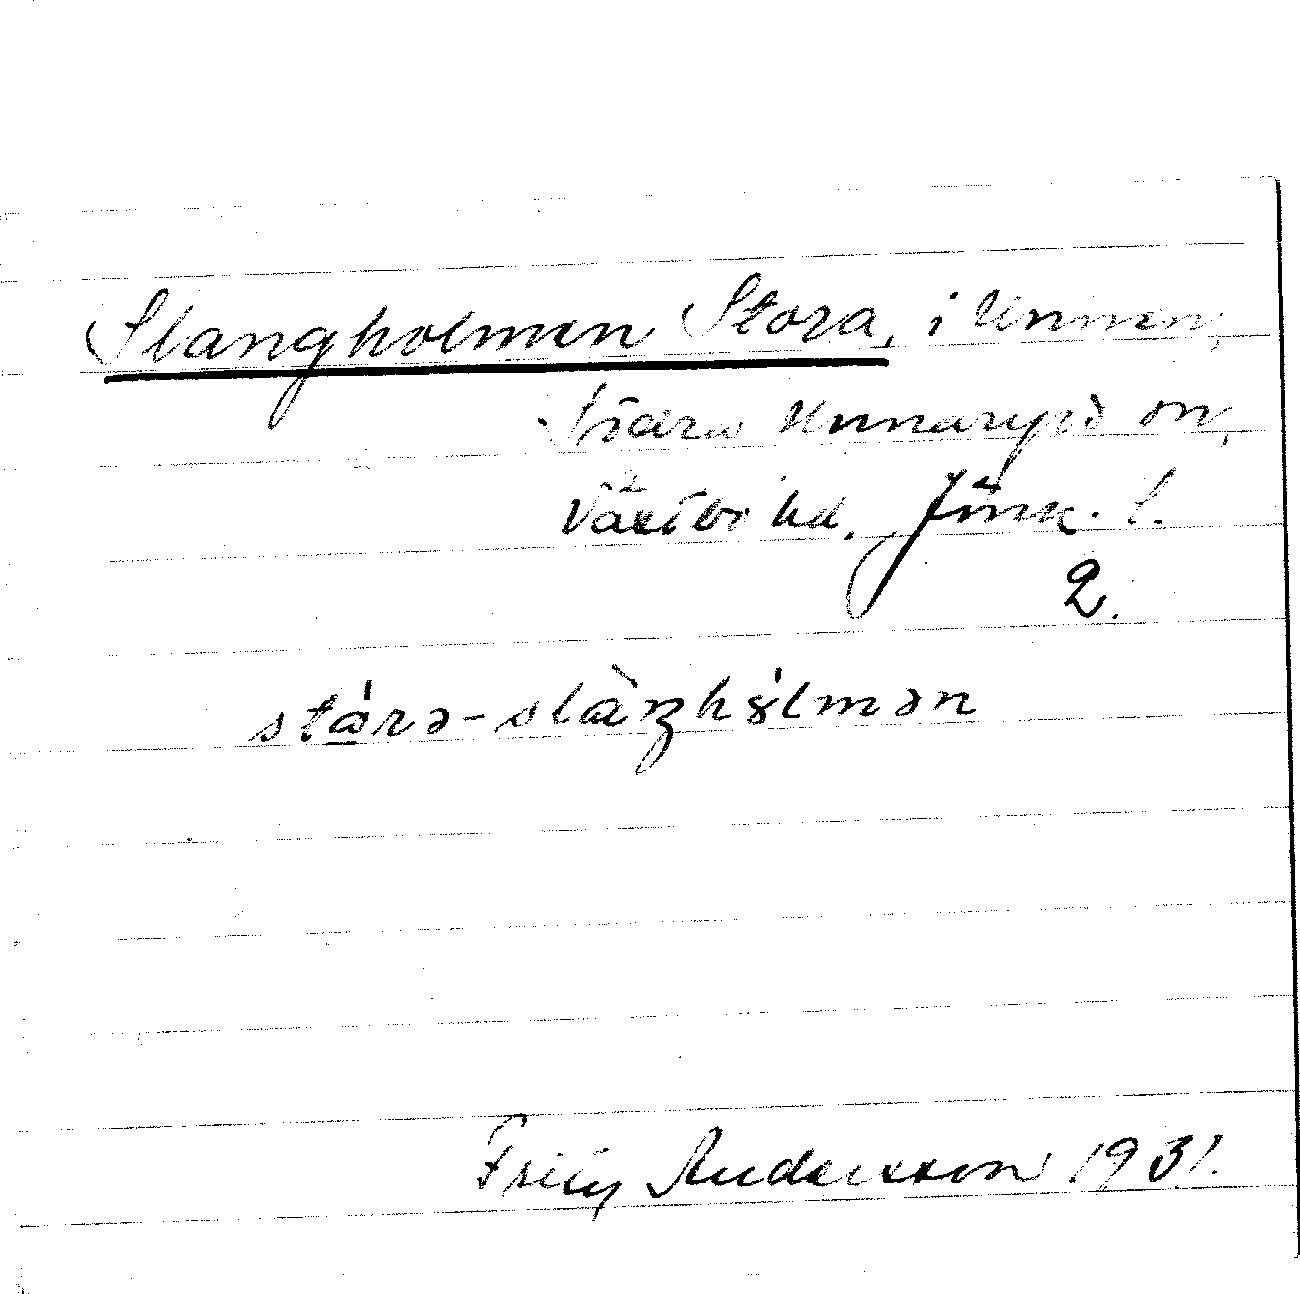 Slangholmen Stora, i Unnen,
Södra Unnaryd sn,
Västbo hd. Jönk. l.
2.
stárə-slàŋhɤ́lmən
Fritz Andersson 1931.